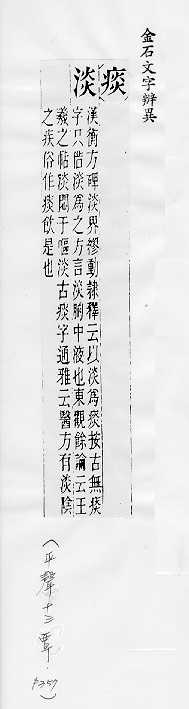 金石文字辨異
痰
淡
漢衡方碑淡界繆動隸釋云以淡為痰按古無痰
字只借淡為之方言淡胸中液也東觀餘論云王
羲之帖淡悶干嘔淡古痰字通雅云醫方有淡陰
之疾俗作痰飲是也
(平聲十三覃.
p.257)